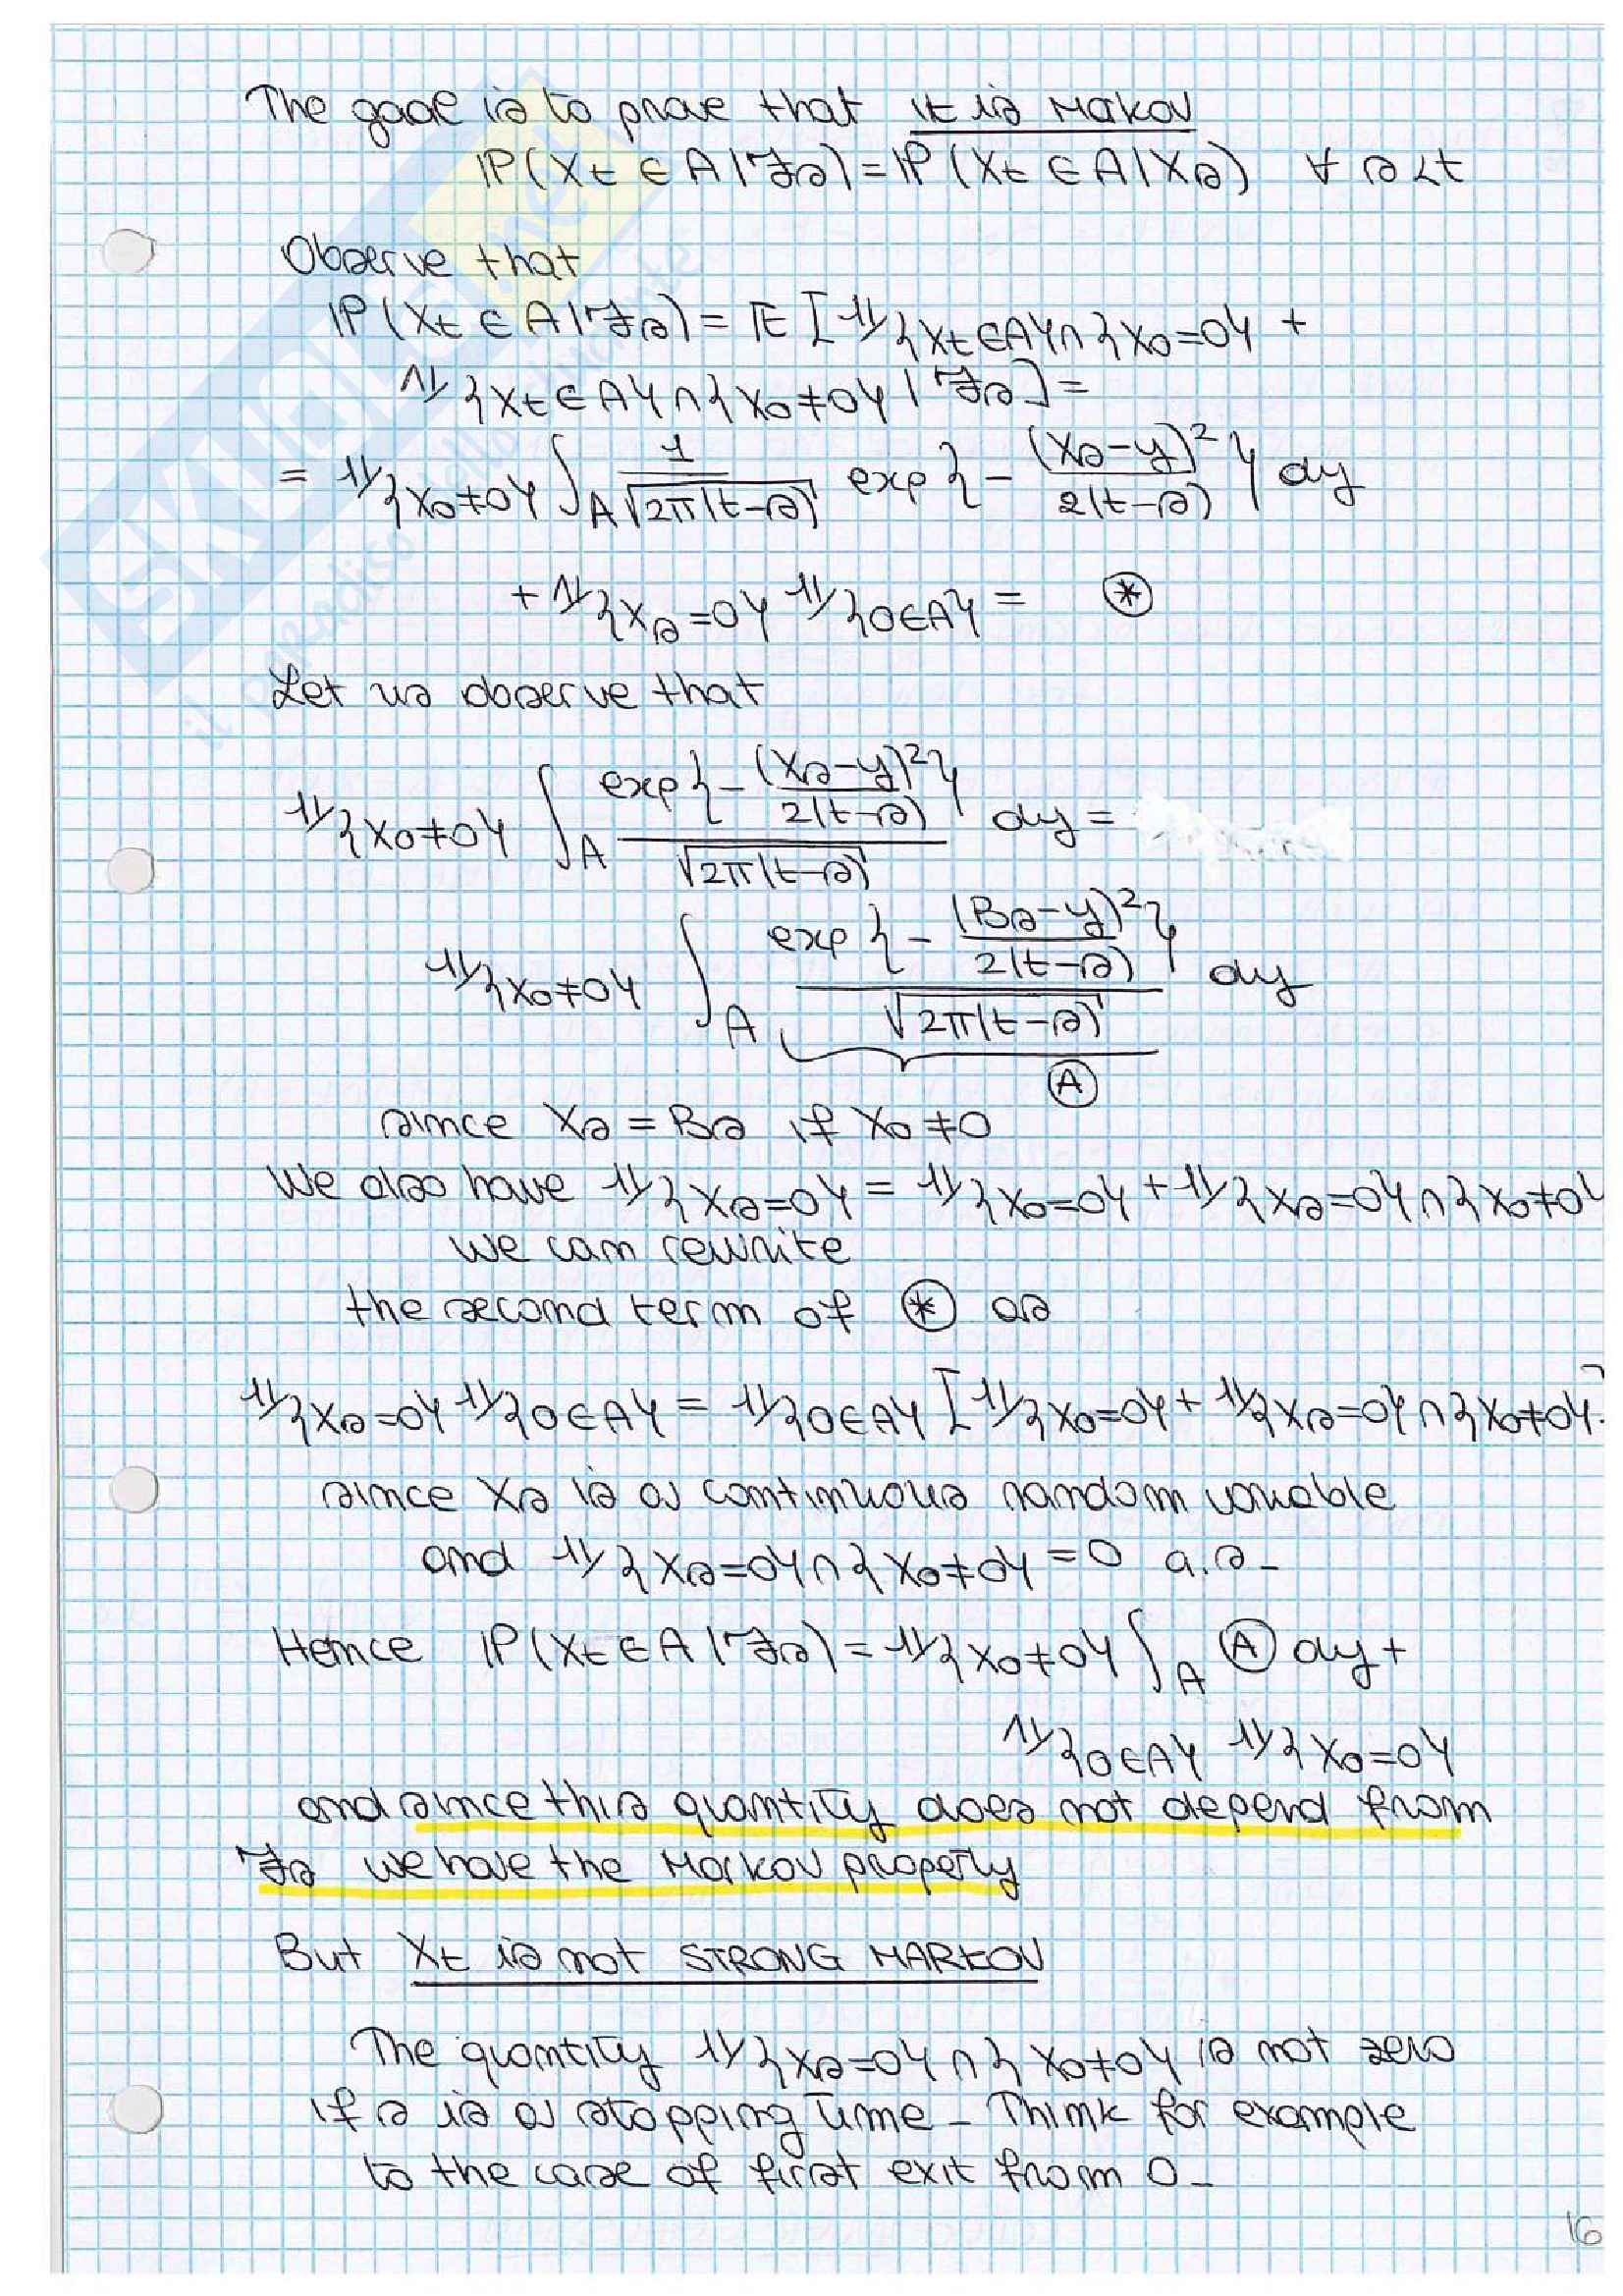 The goal is to prove that it is Makov
ℙ(Xt ∈ A | ℱs) = ℙ(Xt ∈ A | Xs) ∀ s < t
Observe that
ℙ(Xt ∈ A | ℱs) = 𝔼 [ 𝟙{Xt ∈ A} ∩ {X0 = 0} +
𝟙{Xt ∈ A} ∩ {X0 ≠ 0} | ℱs ] =
= 𝟙{X0 ≠ 0} ∫A 1/√(2π(t-s)) exp{ - (Xs - y)²/2(t-s) } dy
+ 𝟙{Xs = 0} 𝟙{0 ∈ A} = ⊛
Let us observe that
𝟙{X0 ≠ 0} ∫A exp{ - (Xs - y)²/2(t-s) } / √(2π(t-s)) dy =
𝟙{X0 ≠ 0} ∫A exp{ - (Bs - y)²/2(t-s) } / √(2π(t-s)) dy
Ⓐ
since Xs = Bs if X0 ≠ 0
We also have 𝟙{Xs = 0} = 𝟙{X0 = 0} + 𝟙{Xs = 0} ∩ {X0 ≠ 0}
we can rewrite
the second term of ⊛ as
𝟙{Xs = 0} 𝟙{0 ∈ A} = 𝟙{0 ∈ A} [ 𝟙{X0 = 0} + 𝟙{Xs = 0} ∩ {X0 ≠ 0} ]
since Xs is a continuous random variable
and 𝟙{Xs = 0} ∩ {X0 ≠ 0} = 0 a.s-
Hence ℙ(Xt ∈ A | ℱs) = 𝟙{X0 ≠ 0} ∫A Ⓐ dy +
𝟙{0 ∈ A} 𝟙{X0 = 0}
and since this quantity does not depend from
ℱs we have the Markov property
But Xt is not STRONG MARKOV
The quantity 𝟙{Xs = 0} ∩ {X0 ≠ 0} is not zero
if s is a stopping time - Think for example
to the case of first exit from 0 -
16
SKUOLA.net
il paradiso dello studente